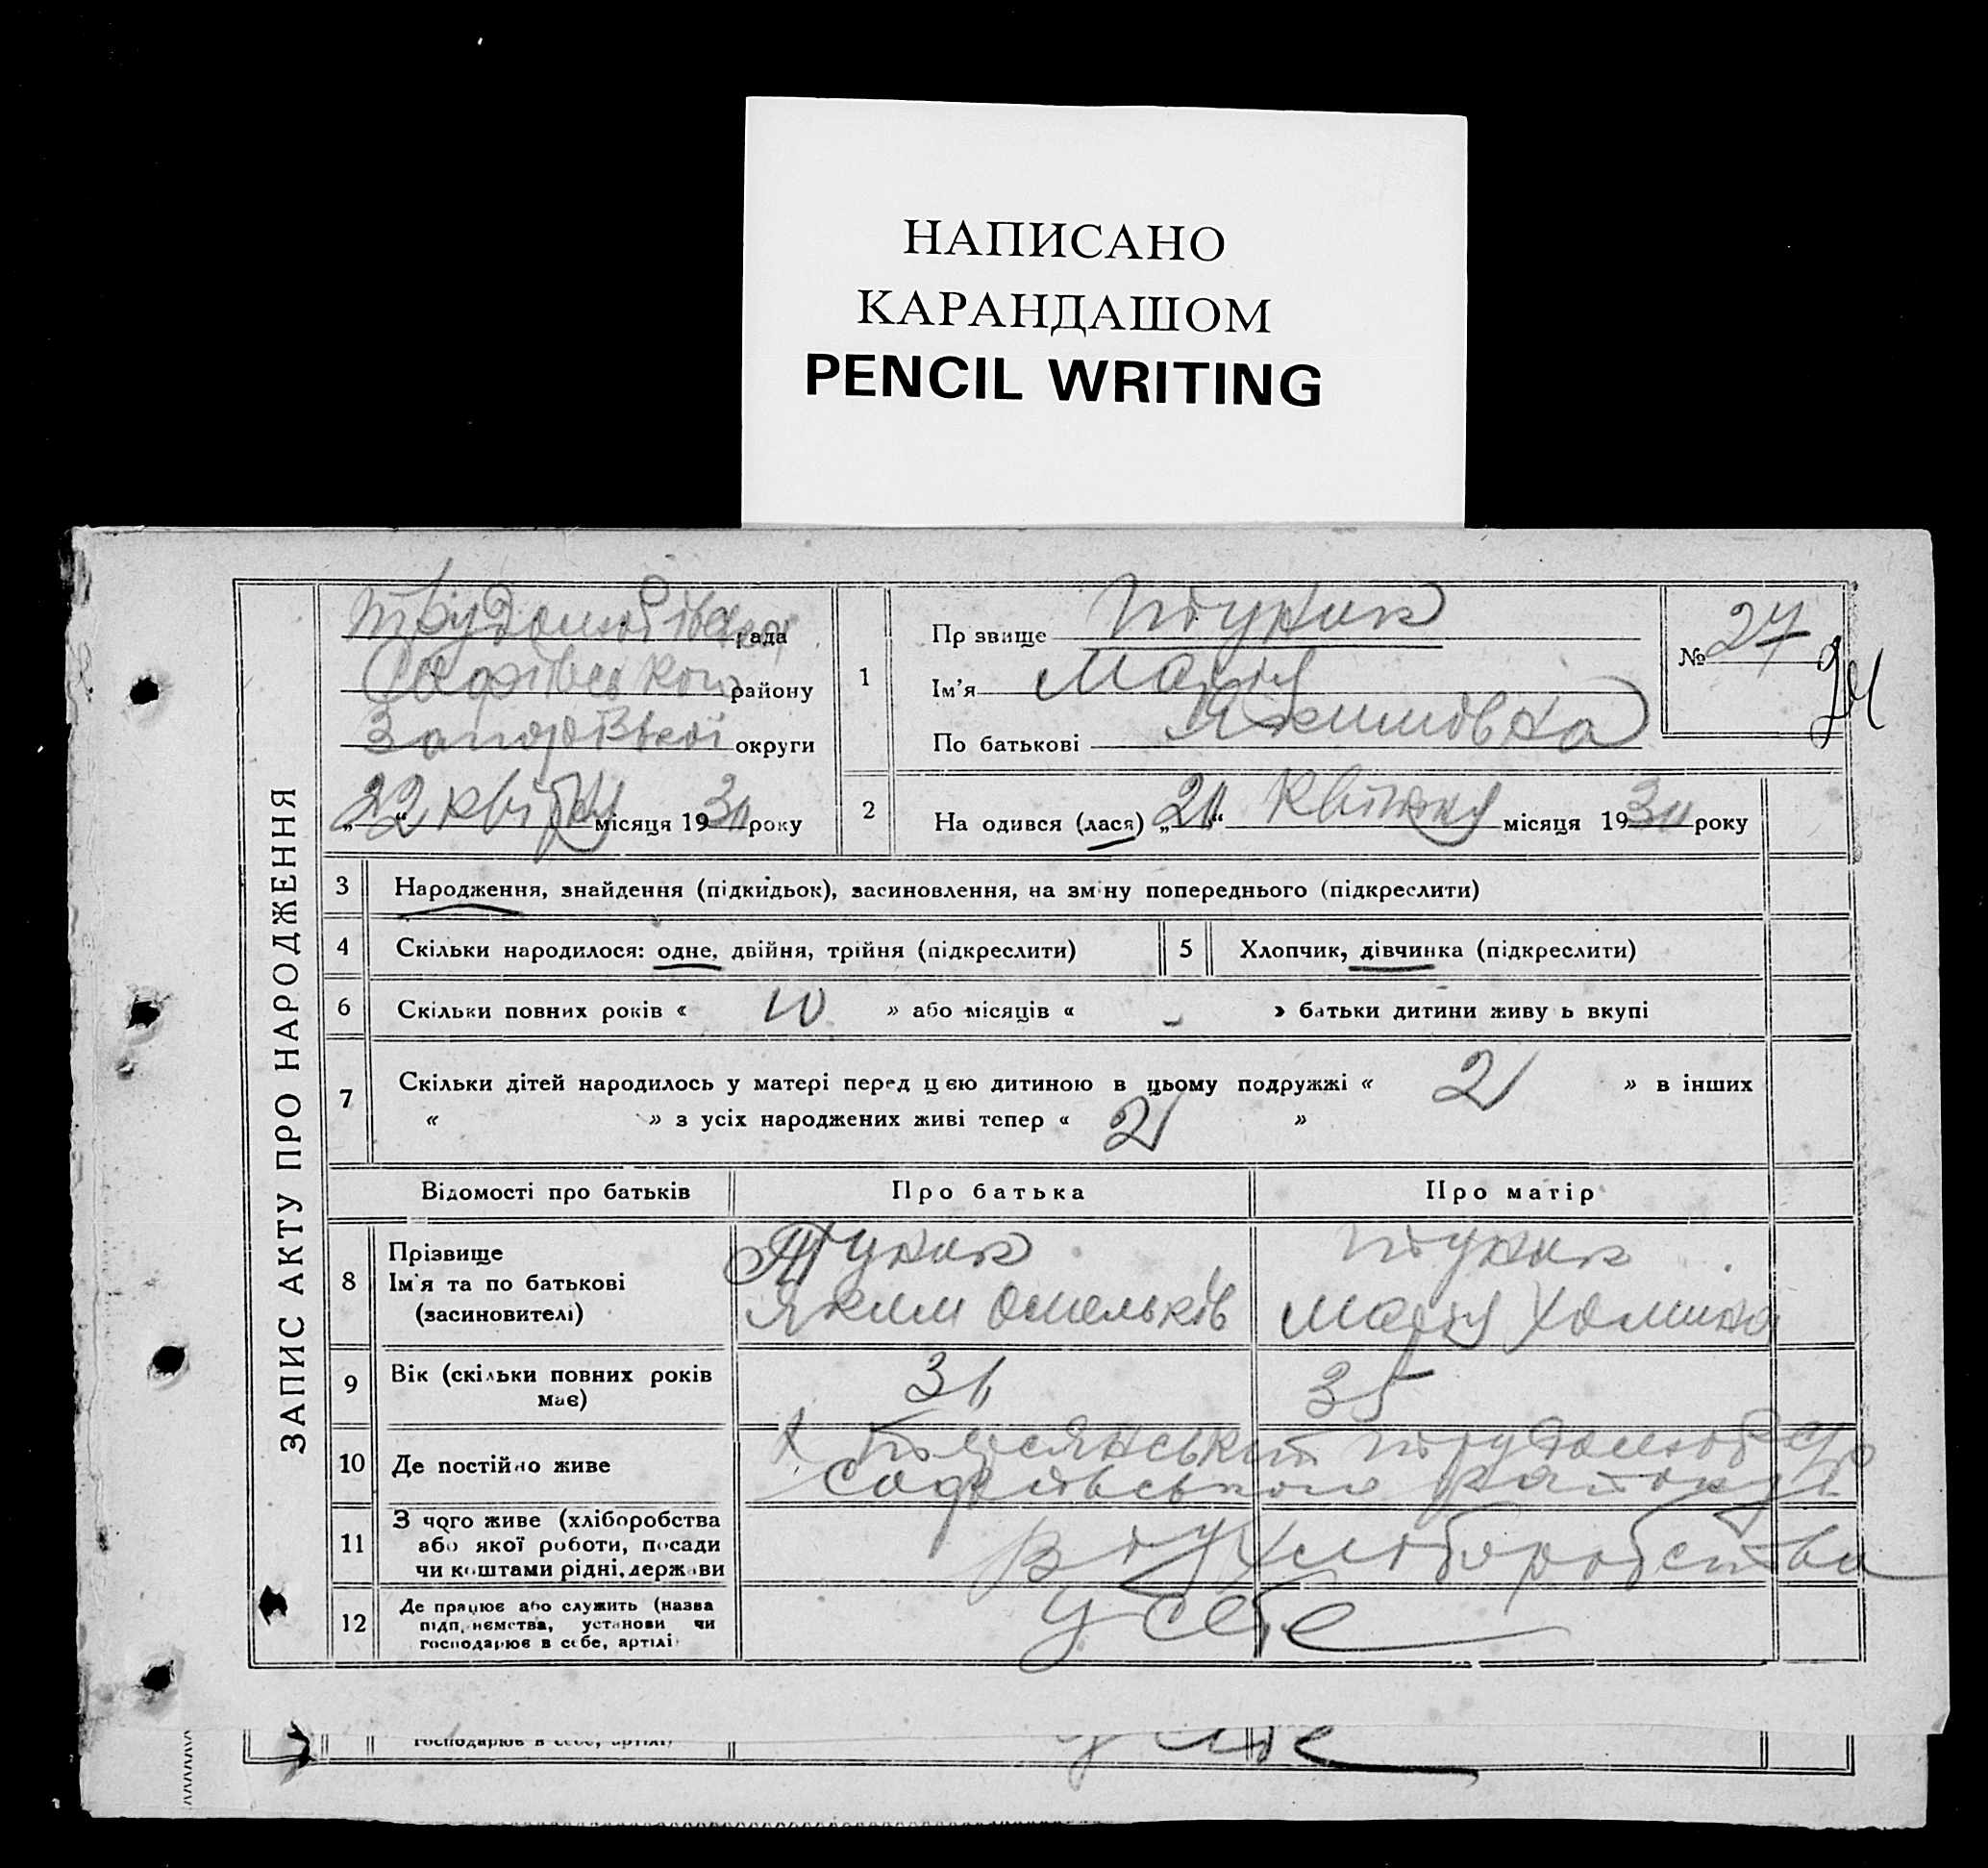 НАПИСАНО
КАРАНДАШОМ
PENCIL WRITING
ЗАПИС АКТУ ПРО НАРОДЖЕННЯ
рада
району
Запорізької округи
„22“ квітня місяця 1930 року
1
Пр звище
Ім'я Марія
По батькові Якимовна
№ 24
2
На одився (лася) „21“ квітня місяця 1930 року
3 Народження, знайдення (підкидьок), засиновлення, на зміну попереднього (підкреслити)
4 Скільки народилося: одне, двійня, трійня (підкреслити)
5 Хлопчик, дівчинка (підкреслити)
6 Скільки повних років « 10 » або місяців « - » батьки дитини живу ь вкупі
7 Скільки дітей народилось у матері перед цею дитиною в цьому подружжі « 2 » в інших
« » з усіх народжених живі тепер « 2 »
Відомості про батьків Про батька Про матір
8
Прізвище
Ім'я та по батькові
(засиновителі)
Яким Омельків
Марія Хомина
9 Вік (скільки повних років
має)
31
35
10 Де постійно живе
Софіївського району
11 З чого живе (хліборобства
або якої роботи, посади
чи коштами рідні, держави
від хліборобства
12 Де працює або служить (назва
підп, иємства, установи чи
господарює в себе, артілі
у себе
господарює в себе, артілі
у себе